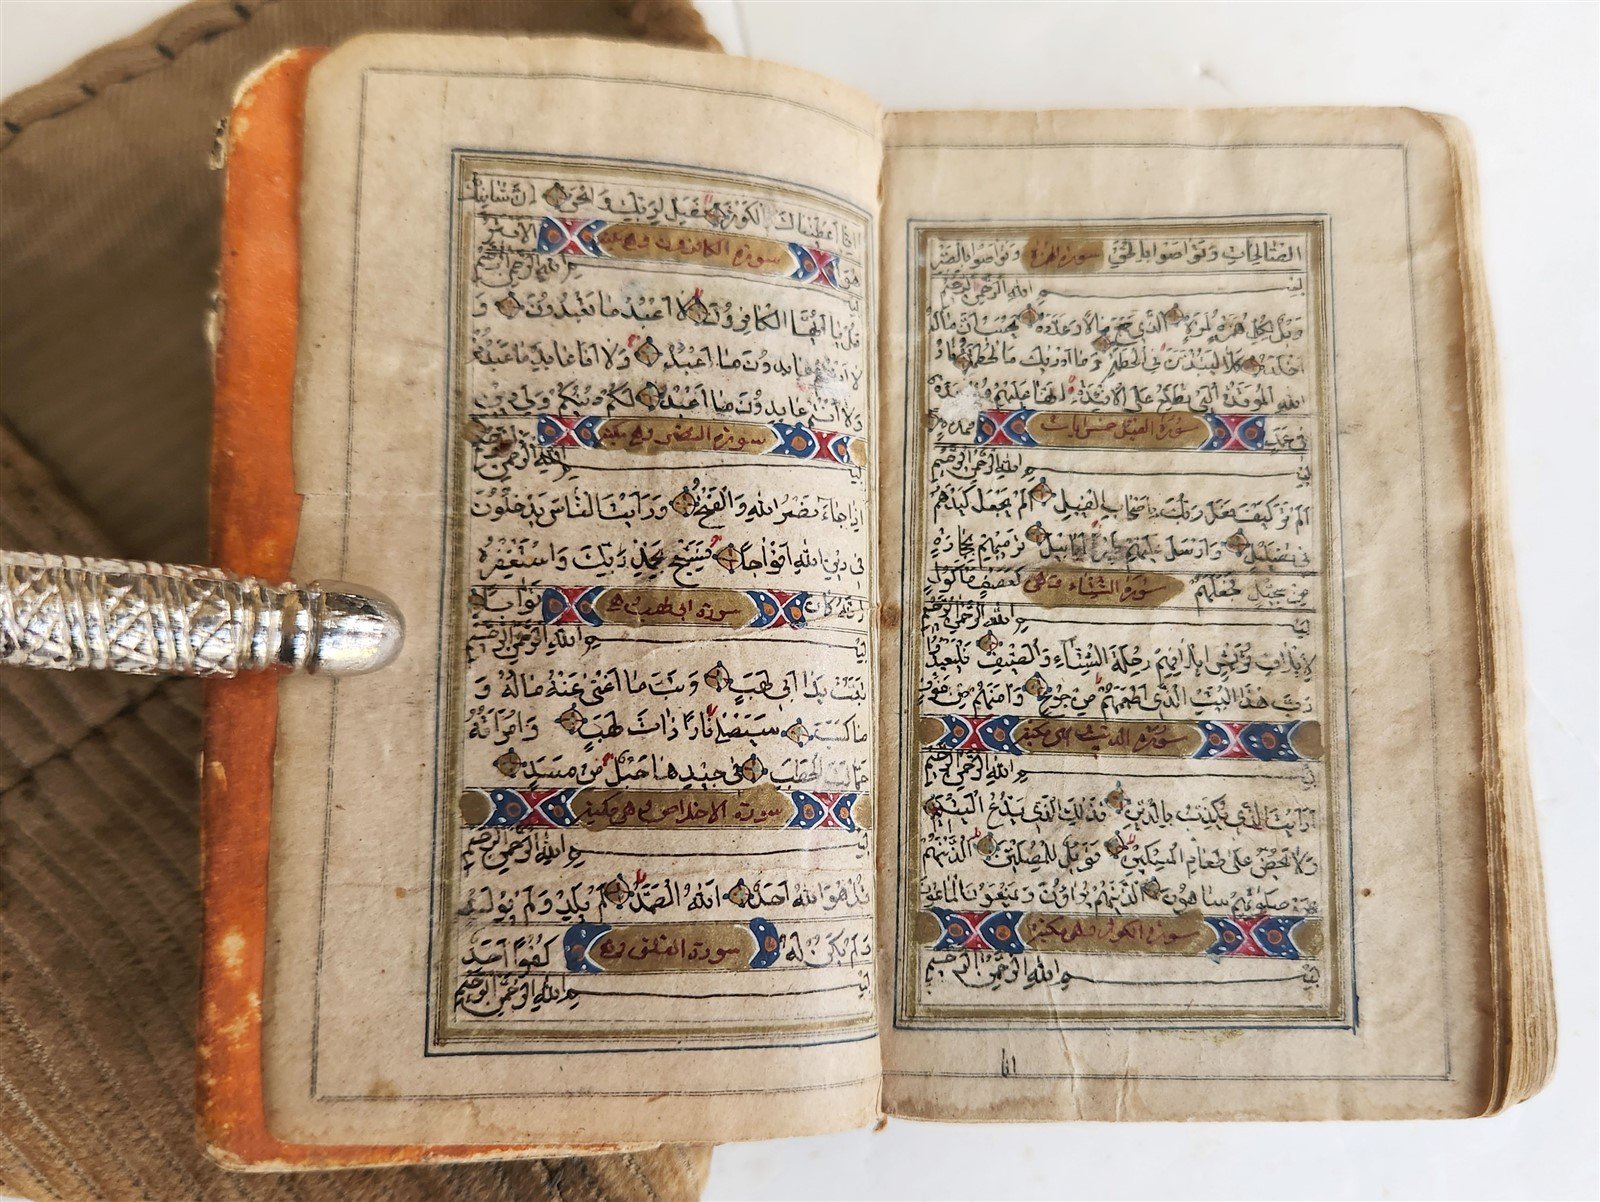 الصالحات وتواصوا بالحق سورة الهمزة وتواصوا بالصبر
بسم الله الرحمن الرحيم
ويل لكل همزة لمزة الذي جمع مالا وعدده يحسب ان ماله
اخلده كلا لينبذن في الحطمة وما ادريك ما الحطمة نار
الله الموقدة التي تطلع على الافئدة انها عليهم مؤصدة
في عمد سورة الفيل خمس ايات ممددة
بسم الله الرحمن الرحيم
الم تر كيف فعل ربك باصحاب الفيل الم يجعل كيدهم
في تضليل وارسل عليهم طيرا ابابيل ترميهم بحجارة
من سجيل فجعلهم سورة الشتاء كعصف مأكول
بسم الله الرحمن الرحيم
لايلاف قريش ايلافهم رحلة الشتاء والصيف فليعبدوا
رب هذا البيت الذي اطعمهم من جوع وآمنهم من خوف
سورة الدين مكية
بسم الله الرحمن الرحيم
ارايت الذي يكذب بالدين فذلك الذي يدع اليتيم
ولا يحض على طعام المسكين فويل للمصلين الذينهم
عن صلوتهم ساهون الذينهم يراؤن ويمنعون الماعون
سورة الكوثر مكية
بسم الله الرحمن الرحيم
انا
انا اعطيناك الكوثر فصل لربك وانحر ان شانئك
هو سورة الكافرون وهي مكية الابتر
بسم الله الرحمن الرحيم
قل يا ايها الكافرون لا اعبد ما تعبدون و
لا انتم عابدون ما اعبد ولا انا عابد ما عبدتم
ولا انتم عابدون ما اعبد لكم دينكم ولي دين
سورة النصر وهي مكية
بسم الله الرحمن الرحيم
اذا جاء نصر الله والفتح ورايت الناس يدخلون
في دين الله افواجا فسبح بحمد ربك واستغفره
انه كان سورة ابي لهب توابا
بسم الله الرحمن الرحيم
تبت يدا ابي لهب وتب ما اغنى عنه ماله و
ما كسب سيصلى نارا ذات لهب وامراته
حمالة الحطب في جيدها حبل من مسد
سورة الاخلاص وهي مكية
بسم الله الرحمن الرحيم
قل هو الله احد الله الصمد لم يلد ولم يولد
ولم يكن له سورة الفلق كفوا احد
بسم الله الرحمن الرحيم